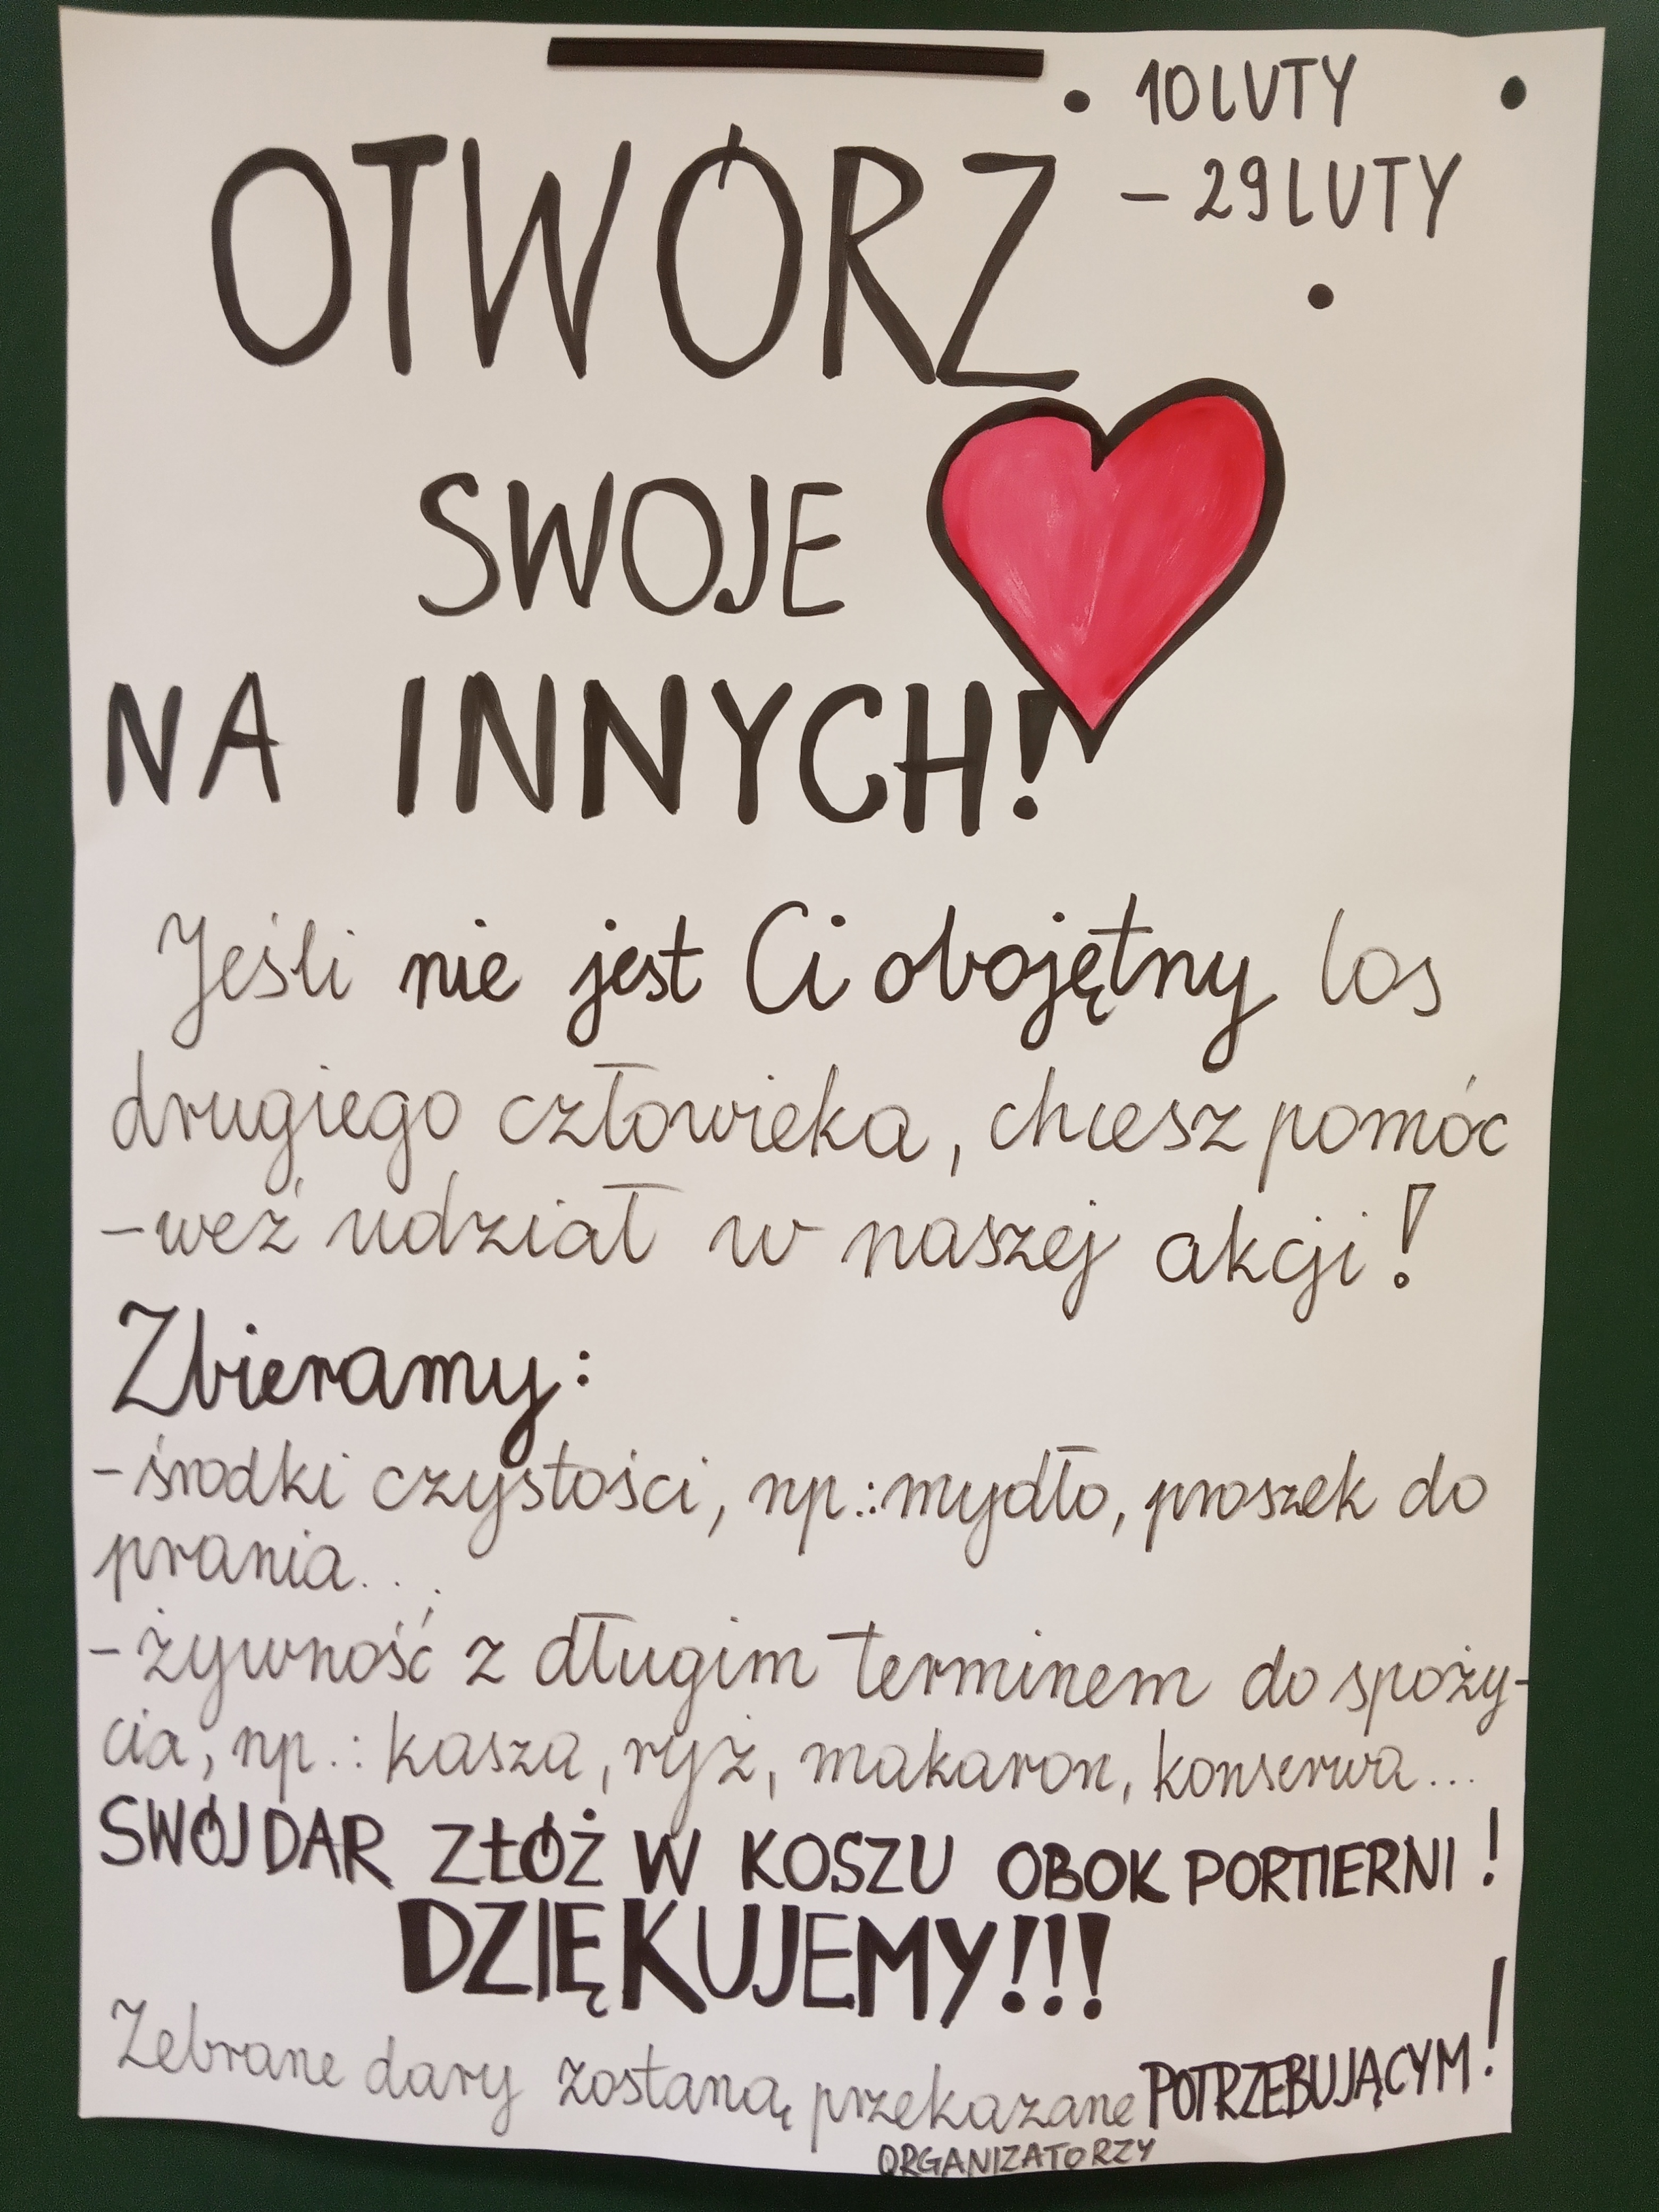 10 LUTY
- 29 LUTY
OTWÓRZ
SWOJE
NA INNYCH!
Jeśli nie jest Ci obojętny los
drugiego człowieka, chcesz pomóc
- weź udział w naszej akcji!
Zbieramy:
- środki czystości, np.: mydło, proszek do
prania...
- żywność z długim terminem do spoży-
cia, np.: kasza, ryż, makaron, konserwa...
SWÓJ DAR ZŁÓŻ W KOSZU OBOK PORTIERNI!
DZIĘKUJEMY!!!
Zebrane dary zostaną przekazane POTRZEBUJĄCYM!
ORGANIZATORZY